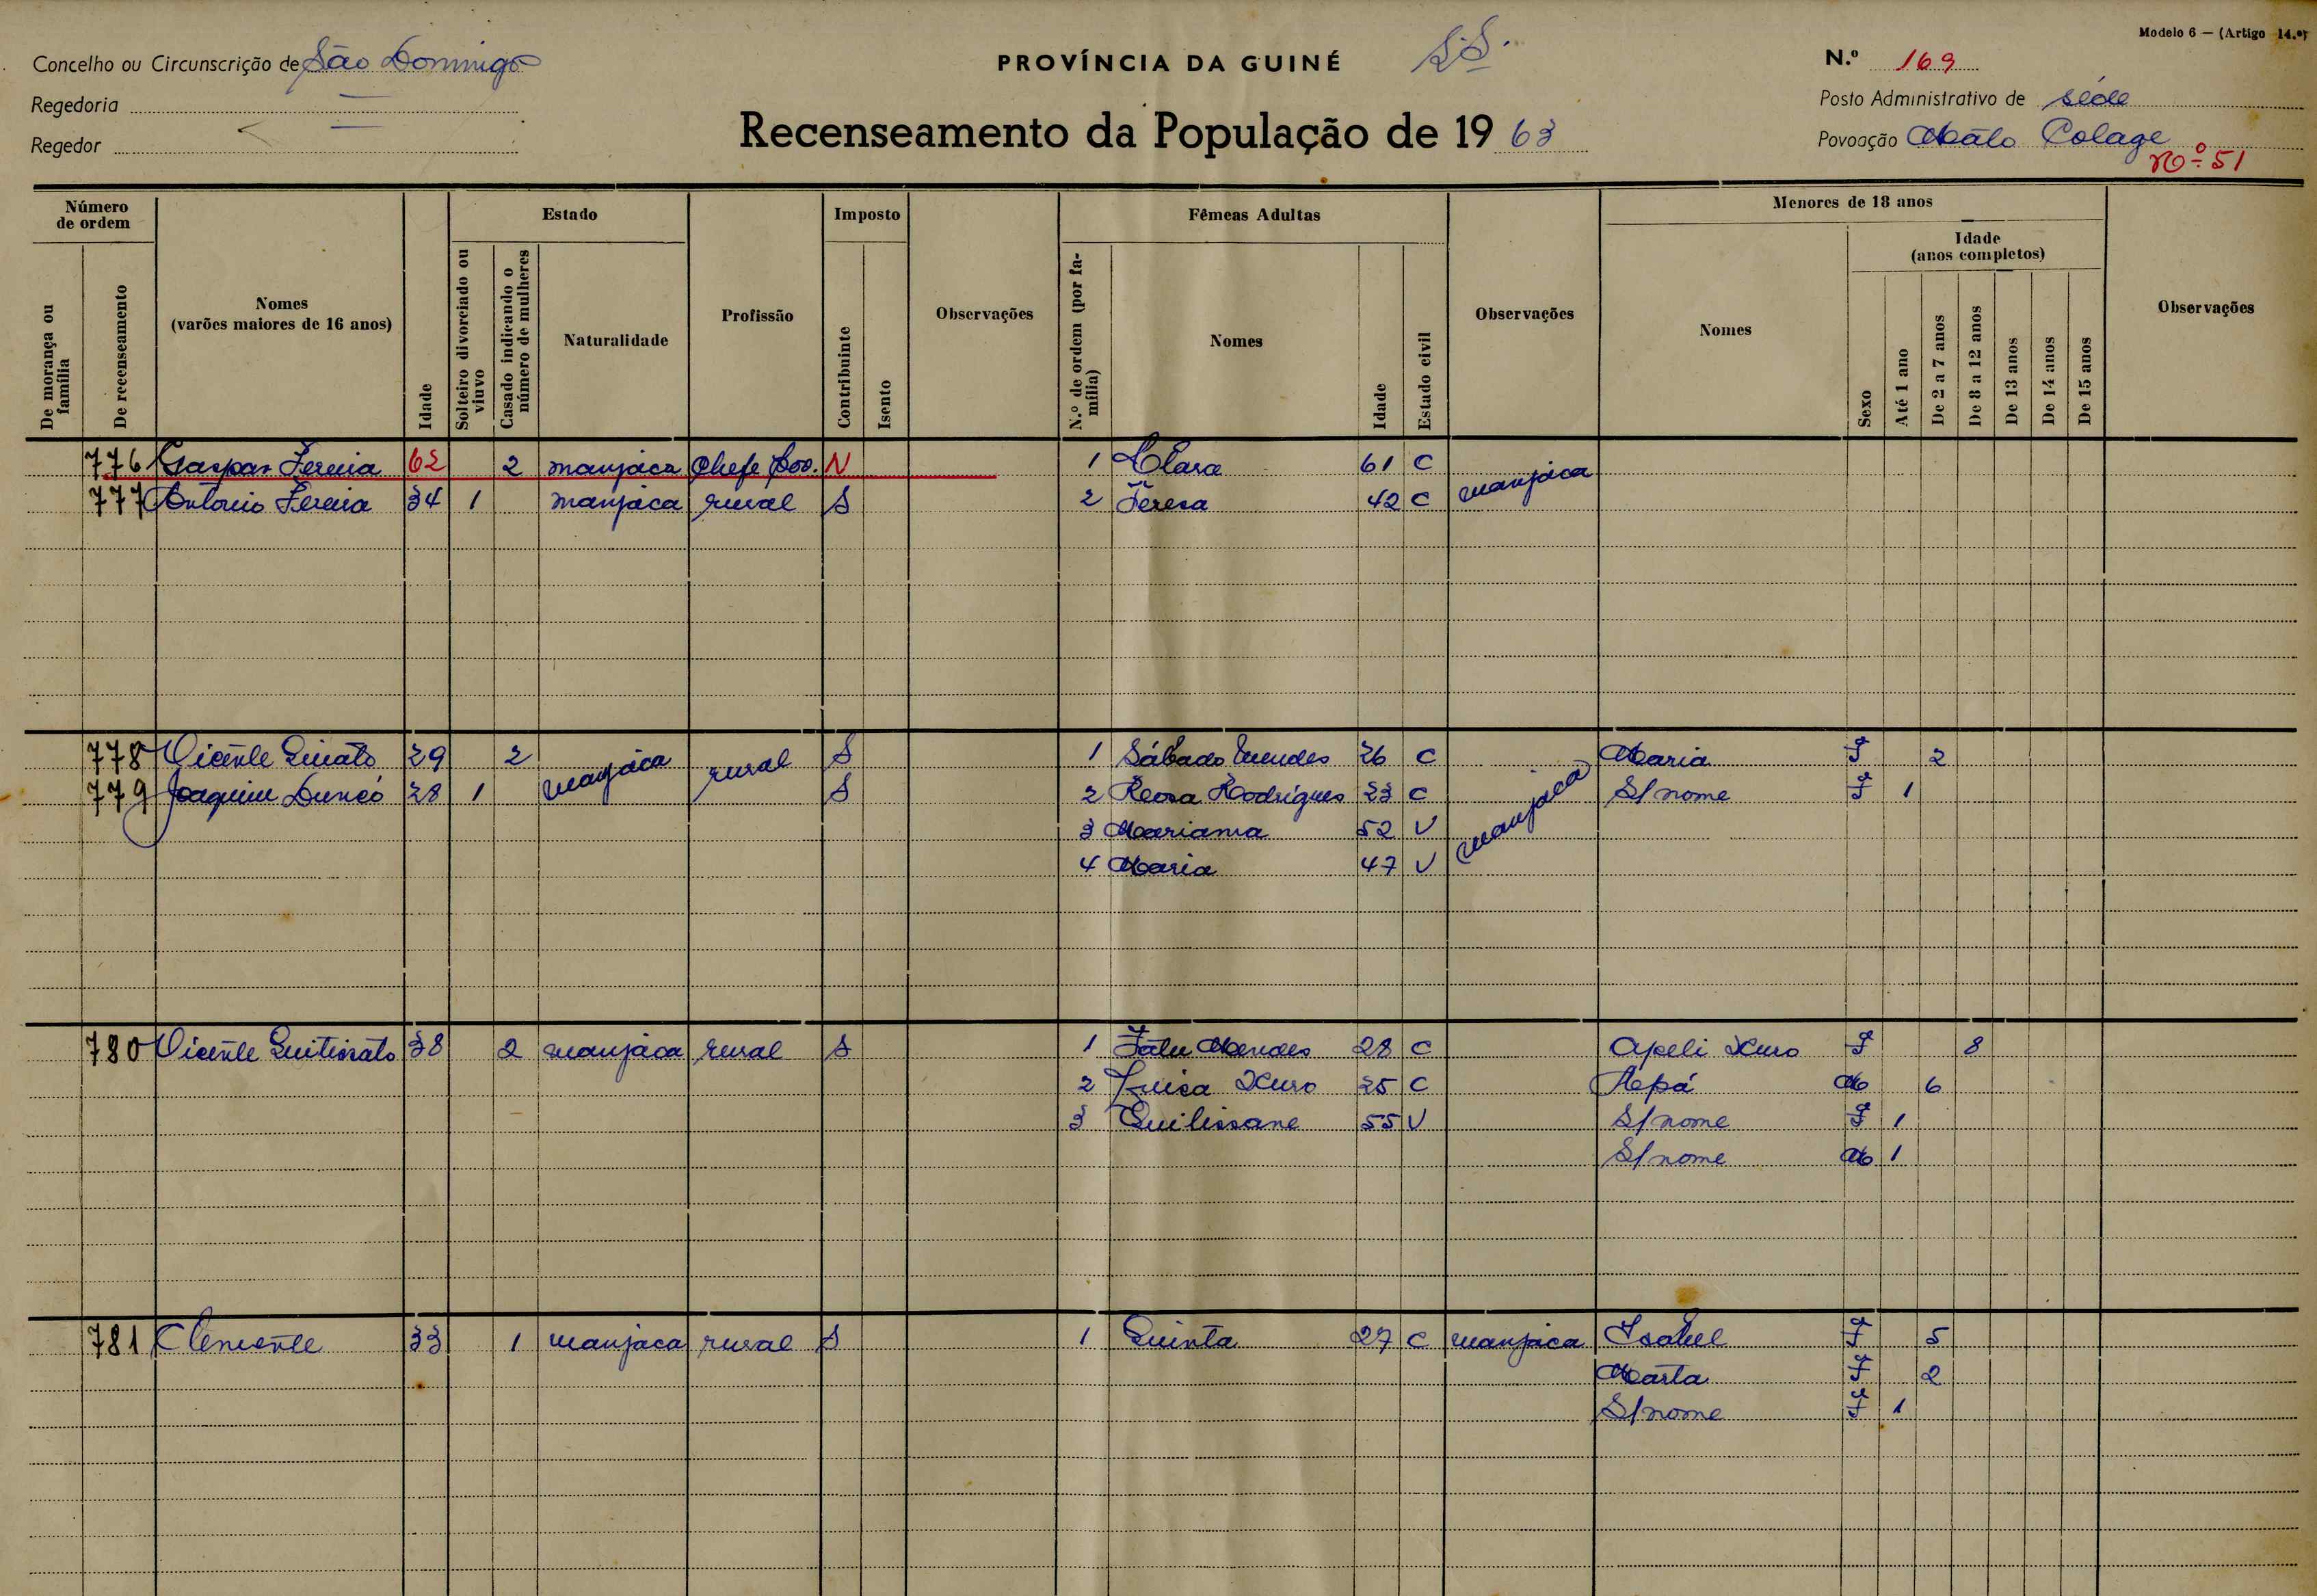 Modelo 6 — (Artigo 14.º)
Concelho ou Circunscrição de São Domingo
PROVÍNCIA DA GUINÉ S.S.
N.º 169
Regedoria —
Posto Administrativo de séde
Regedor —
Recenseamento da População de 1963
Povoação Mato Colage
Nº 51
Número de ordem
De morança ou família
De recenseamento
Nomes (varões maiores de 16 anos)
Idade
Estado
Solteiro divorciado ou viuvo
Casado indicando o número de mulheres
Naturalidade
Profissão
Imposto
Contribuinte
Isento
Observações
Fêmeas Adultas
N.º de ordem (por família)
Nomes
Idade
Estado civil
Observações
Menores de 18 anos
Nomes
Sexo
Idade (anos completos)
Até 1 ano
De 2 a 7 anos
De 8 a 12 anos
De 13 anos
De 14 anos
De 15 anos
Observações
776 Gaspar Fereira 62 2 manjaca Chefe Pov. N 1 Clara 61 C manjaca
777 Antonio Fereira 34 1 manjaca rural S 2 Teresa 42 C
778 Vicente 29 2 manjaca rural S 1 Sábado Mendes 26 C manjaca Maria F 2
779 Joaquim 28 1 S 2 Rosa Rodrigues 23 C S/nome F 1
3 Mariama 52 V
4 Maria 47 V
780 Vicente 38 2 manjaca rural S 1 Fatu Mendes 28 C Apeli F 8
2 Luisa 25 C M 6
3 Quilissane 55 V S/nome F 1
S/nome M 1
781 Clemente 33 1 manjaca rural S 1 Quinta 27 C manjaca Isabel F 5
Marta F 2
S/nome F 1